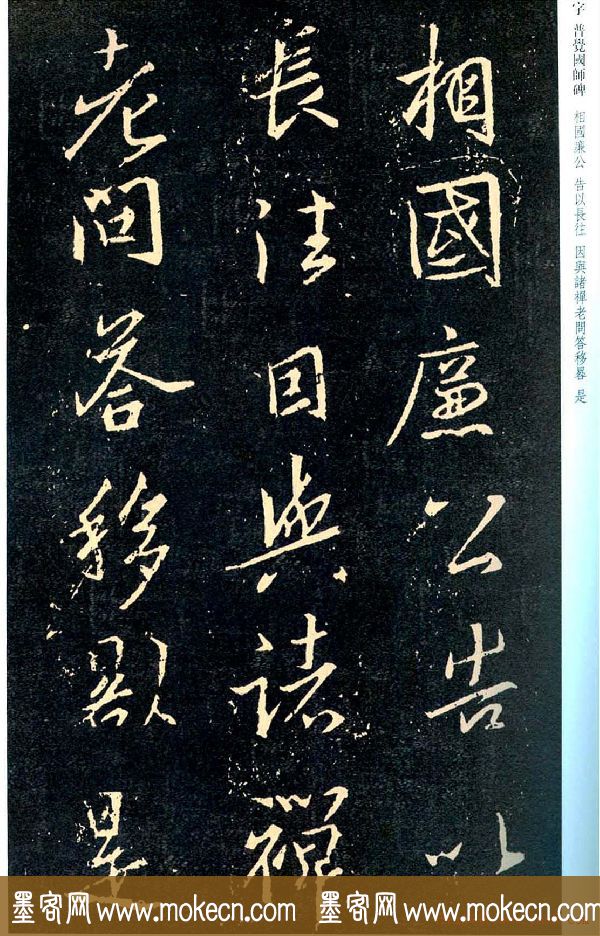 相國廉公告以
長往因與諸禪
老問答移晷是
字 普覺國師碑 相國廉公 告以長往 因與諸禪老問答移晷 是
墨客网 www.mokecn.com 墨客网 www.mokecn.com